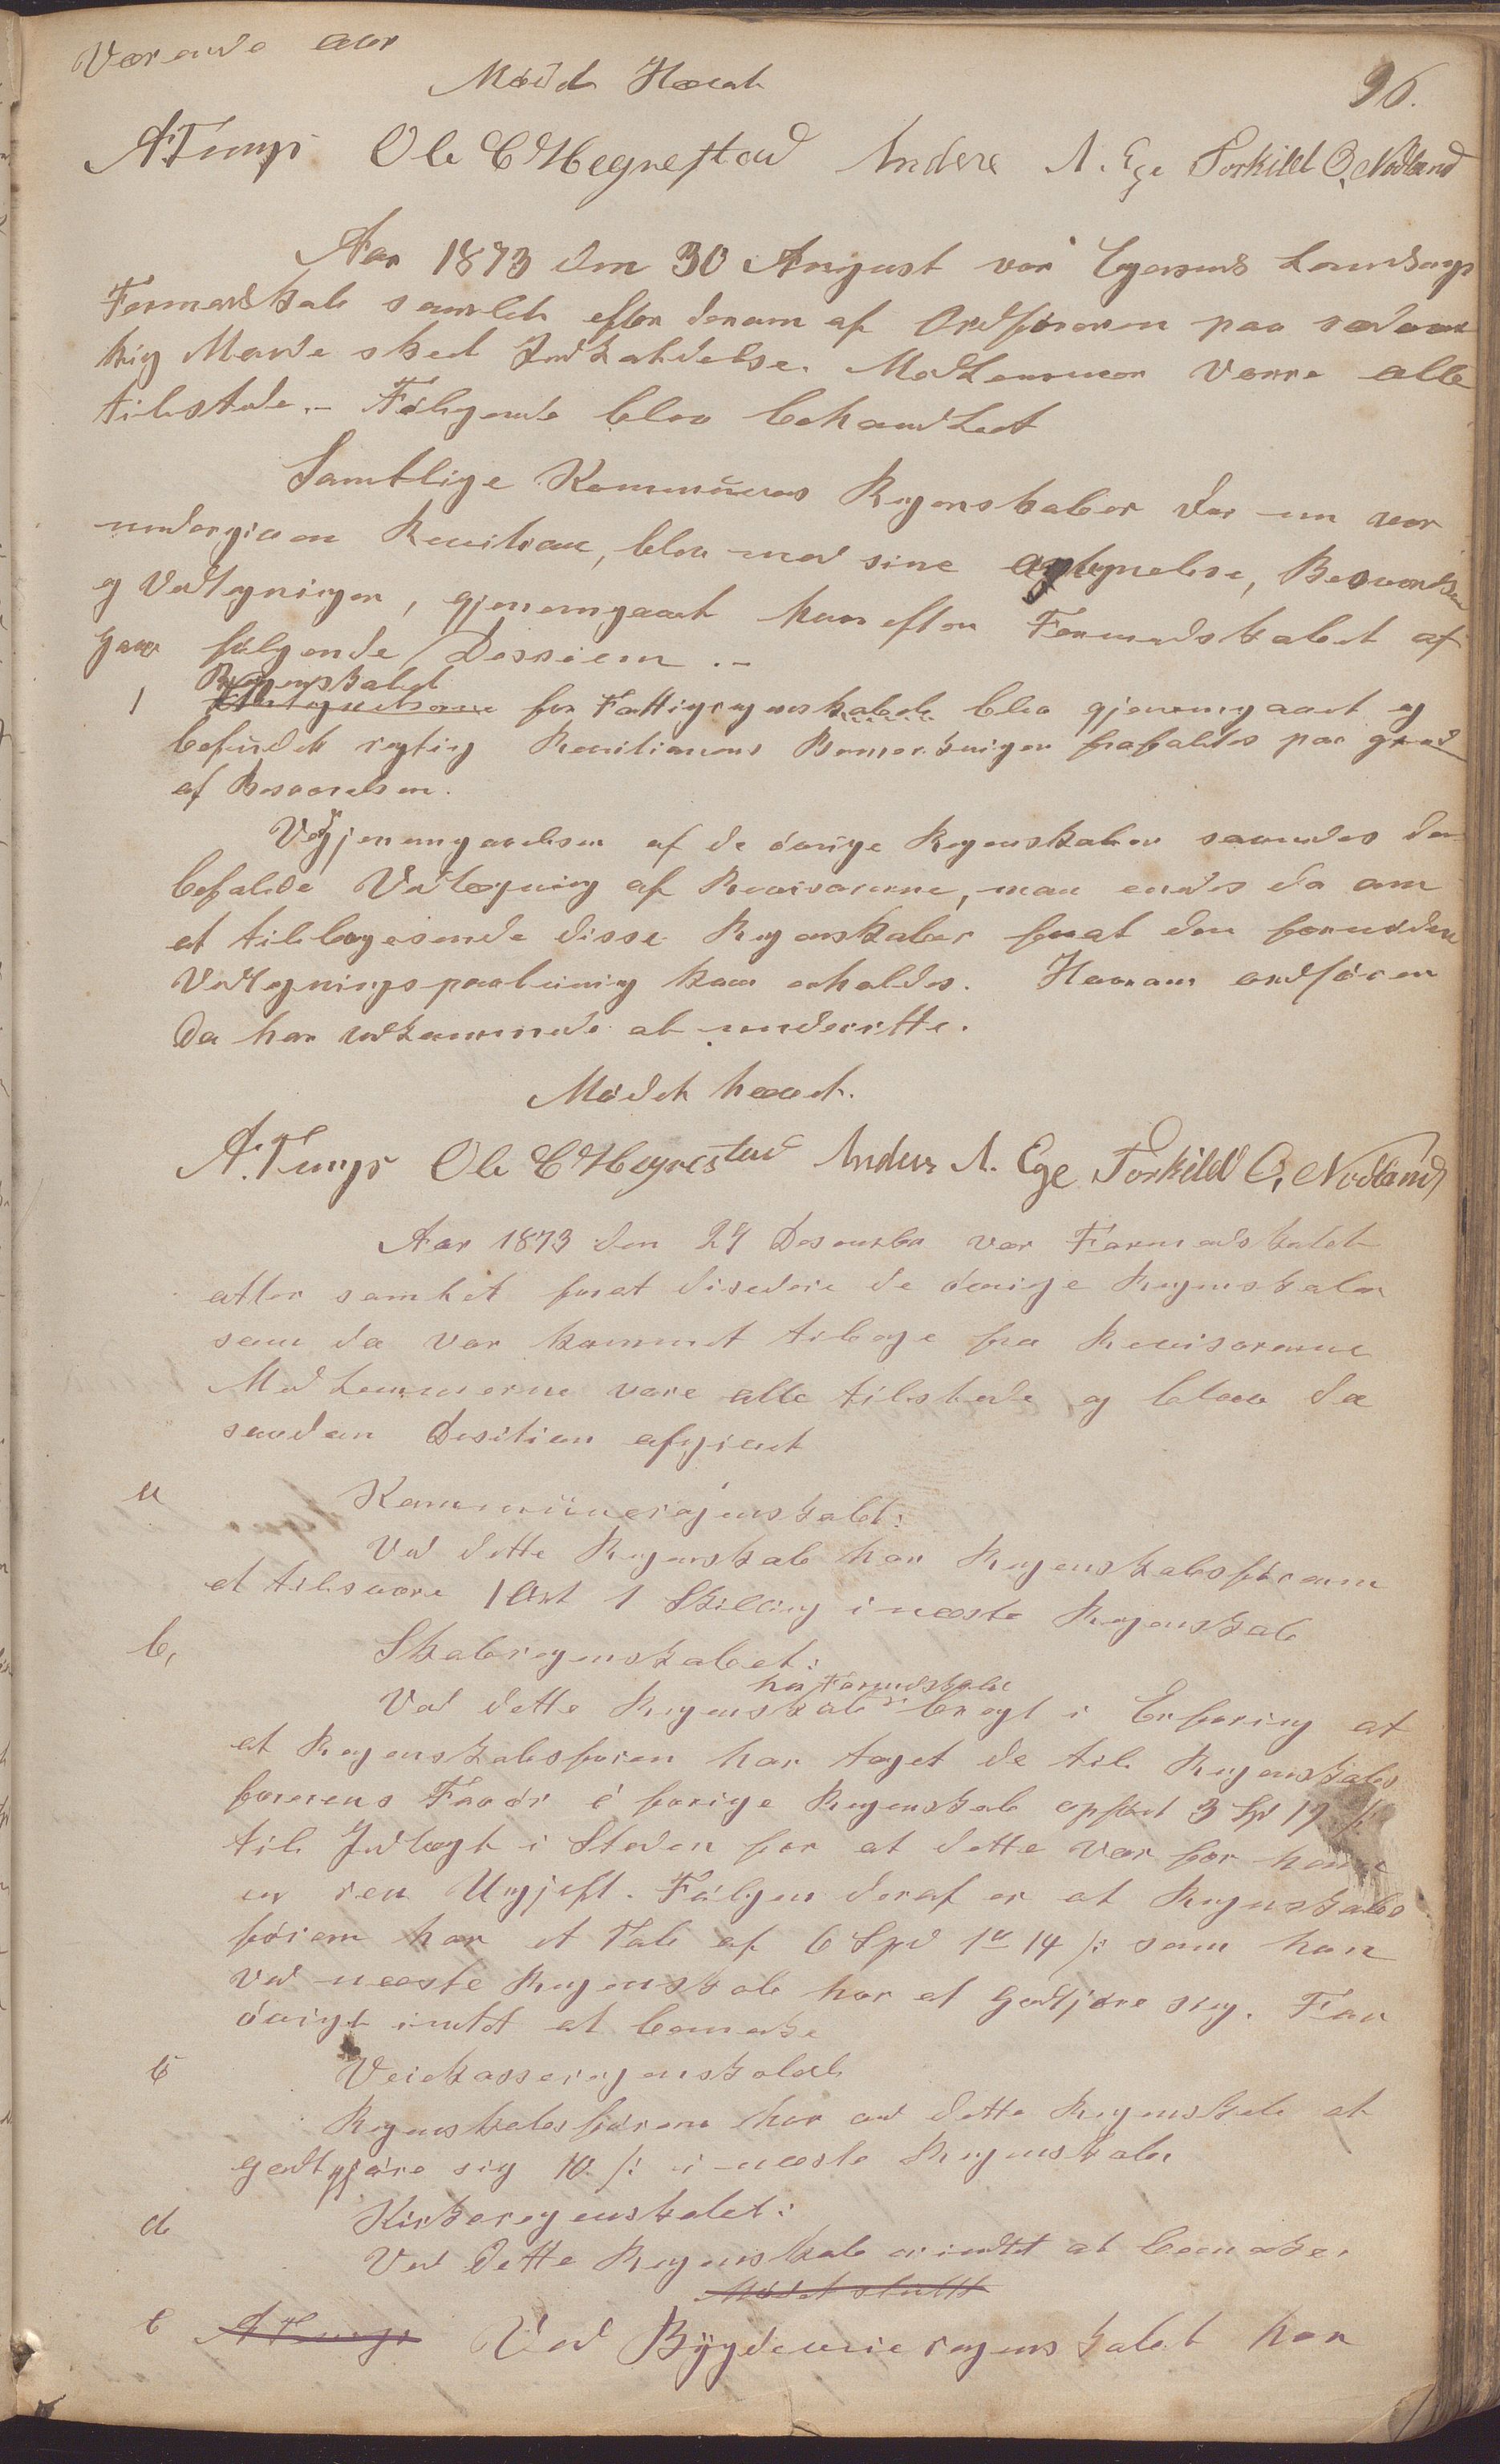 Værende aar
96.
Mödet Hævet
A. Tengs Ole C Hegrestad Anders A. Ege Torkild O. Nodland
Aar 1873 den 30 August var Egersunds Landsogns
Formandskab samlet efter derom af Ordföreren paa sædvan
lig Maade skeet Indkaldelse. Medlemmer vare alle
tilstede. – Fölgende blev behandlet
Samtlige Kommunens Regenskaber der nu var
undergiven Revition, blev med sine antegnelse, Besvarelse
og Vedtegninger, gjenemgaaet hvorefter Formandskabet af
gav fölgende Dession. –
Regenskabet
1 for Fattigregenskabet blev gjenemgaaet og
befundet regtig Revitionens Bemerkninger frafaldes paa grund
af Besvarelsen.
Ved Gjenemgaaelsen af de övrige Regenskaber savnedes den
befalede Vedtegning af Revisorerne, man enedes da om
at tilbagesende disse Regenskaber forat den fornödne
Vedtegningspaategning kan erholdes. Hvorom ordfören
da har vedkommende at underrette.
Mödet hævet.
A. Tengs Ole C Hegrestad Anders A. Ege Torkild O. Nodland
Aar 1873 den 27 Desember var Formandskabet
atter samlet forat disedere de övrige Regenskaber
som da var kommet tilbage fra Revisorerne
Medlemmerne vare alle tilstede og blev da
saadan Desition afgivet
a Kommuneregenskabet:
Ved dette Regenskab har Regenskabsföreren
at tilsvare 1 Ort 1 Skilling i næste Regenskab
b, Skoleregenskabet:
har Formandskabet
Ved dette Regenskab bragt i Erfaring at
at Regenskabsfören har taget de til Regenskabs
förerens Favör i forige Regenskab opfört 3 Spd 17 /:
til Indtægt i Steden for at dette var for ham
en ren Utgjeft. Fölgen deraf er at Regenskabs
föreren har et Tab af 6 Spd 1 14 /: som han
ved neeste Regenskab har at Godtjöre sig. For
övrigt intet at bemerke
c Veiekasseregenskabet
Regenskabsföreren har ved dette Regenskab at
godtgjöre sig 10 /: i næste Regenskab
d Kirkeregenskabet:
Ved dette Regenskab er intet at bemerke.
Mödet sluttet
e A Tengs Ved Bÿgde regenskabet har